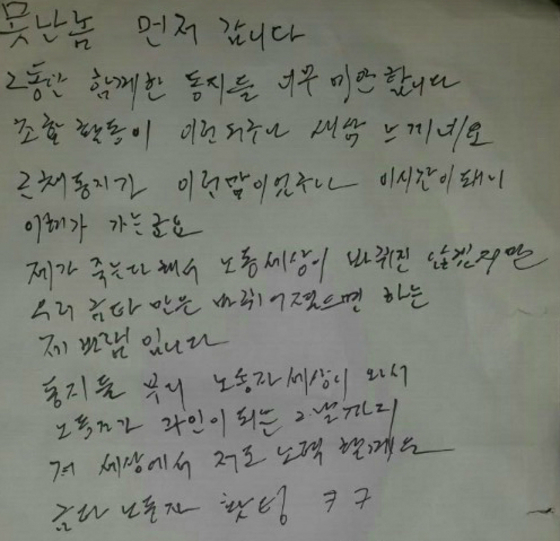 못난놈 먼저 갑니다
그동안 함께한 동지들 너무 미안합니다
조합 활동이 이런거구나 새삼 느끼네요
근채동지가 이런맘이었구나 이시간이돼니
이해가 가는군요
제가 죽는다해서 노동세상이 바뀌진 않겠지만
우리 금타 만은 바뀌어졌으면 하는
제 바램 입니다
동지들 부디 노동자세상이 와서
노동자가 주인이 되는 그날까지
저 세상에서 저도 노력 할께요
금타 노동자 홧팅